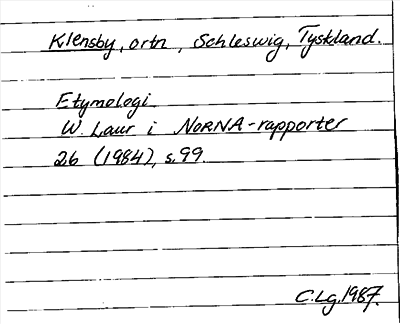 Klensby, ortn, Schleswig, Tyskland.
Etymologi
W. Laur i NORNA-rapporter
26 (1984), s. 99.
C. Lg. 1987.